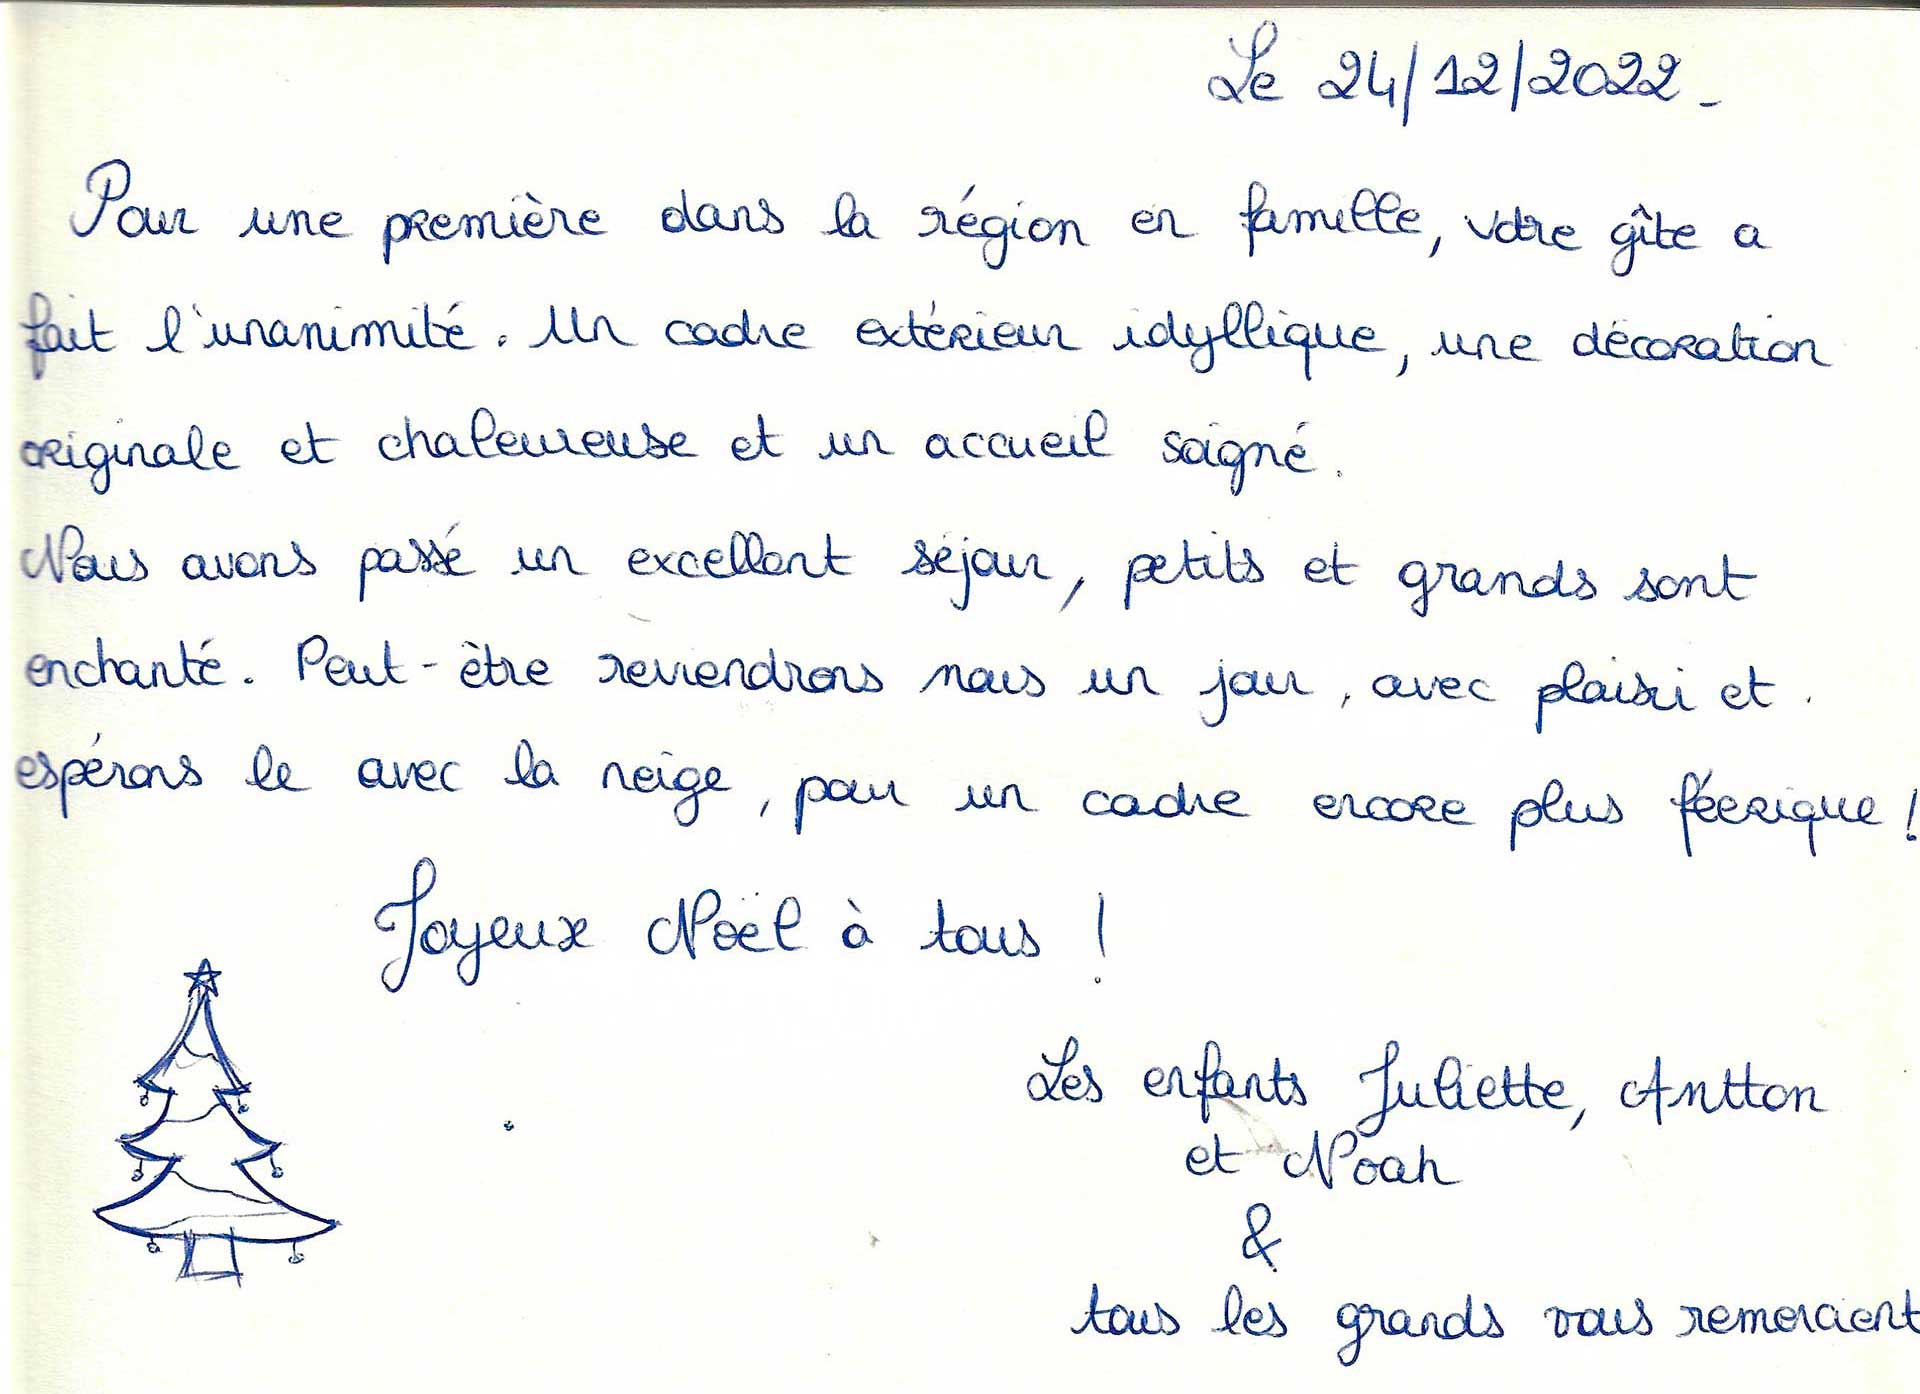 Le 24/12/2022.
Pour une première dans la région en famille, votre gîte a
fait l'unanimité. Un cadre extérieur idyllique, une décoration
originale et chaleureuse et un accueil soigné.
Nous avons passé un excellent séjour, petits et grands sont
enchanté. Peut-être reviendrons nous un jour, avec plaisir et
espérons le avec la neige, pour un cadre encore plus féerique !
Joyeux Noël à tous !
Les enfants Juliette, Antton
et Noah
&
tous les grands vous remercient